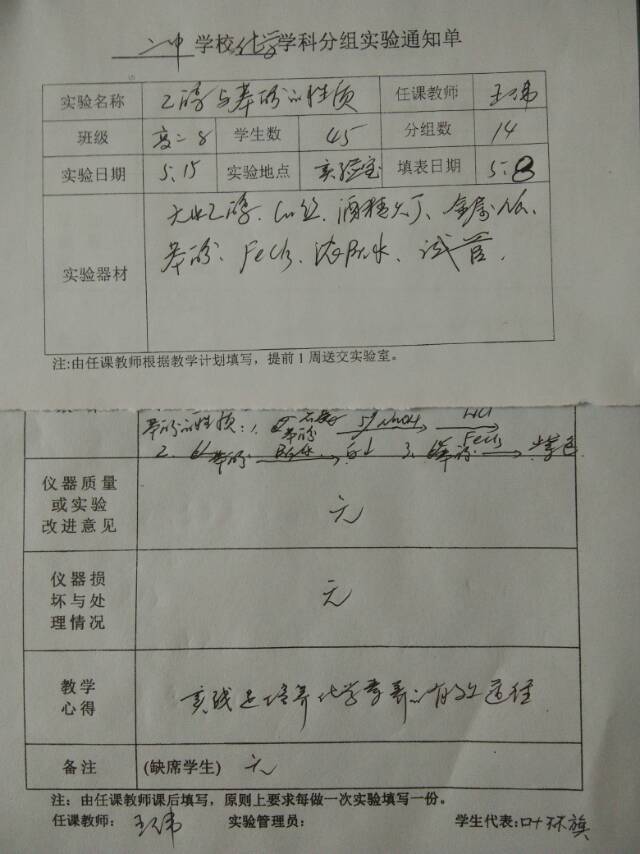 二中 学校 化学 学科分组实验通知单
实验名称 乙醇与苯酚的性质 任课教师 王伟
班级 高二8 学生数 45 分组数 14
实验日期 5.15 实验地点 实验室 填表日期 5.8
无水乙醇、Cu丝、酒精灯、金属Na、
实验器材 苯酚、FeCl3、浓Br水、试管.
注:由任课教师根据教学计划填写，提前1周送交实验室。
苯酚的性质: 1. 苯酚 5%NaOH HCl
2. 苯酚 Br水 白↓ 3. 苯酚 FeCl3 紫色
仪器质量
或实验
改进意见 无
仪器损
坏与处
理情况 无
教学
心得 实践是培养化学素养的有效途径
备注 (缺席学生) 无
注: 由任课教师课后填写，原则上要求每做一次实验填写一份。
任课教师: 王伟 实验管理员: 学生代表: 叶环旗